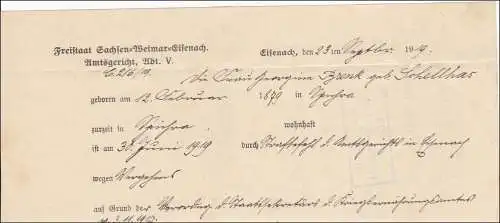 Freistaat Sachsen-Weimar-Eisenach.
Amtsgericht, Abt. V.
Eisenach, den 23ten Septbr. 1919.
Die Frau Georgine Brenk geb. Schellhas
geboren am 12. Februar 1879 in Spichra
zurzeit in Spichra wohnhaft
ist am 30. Juni 1919 durch Strafbefehl d. Amtsgerichts in Eisenach
wegen Vergehens
auf Grund der Verordng d. Staatssekretärs d. Kriegsernährungsamtes